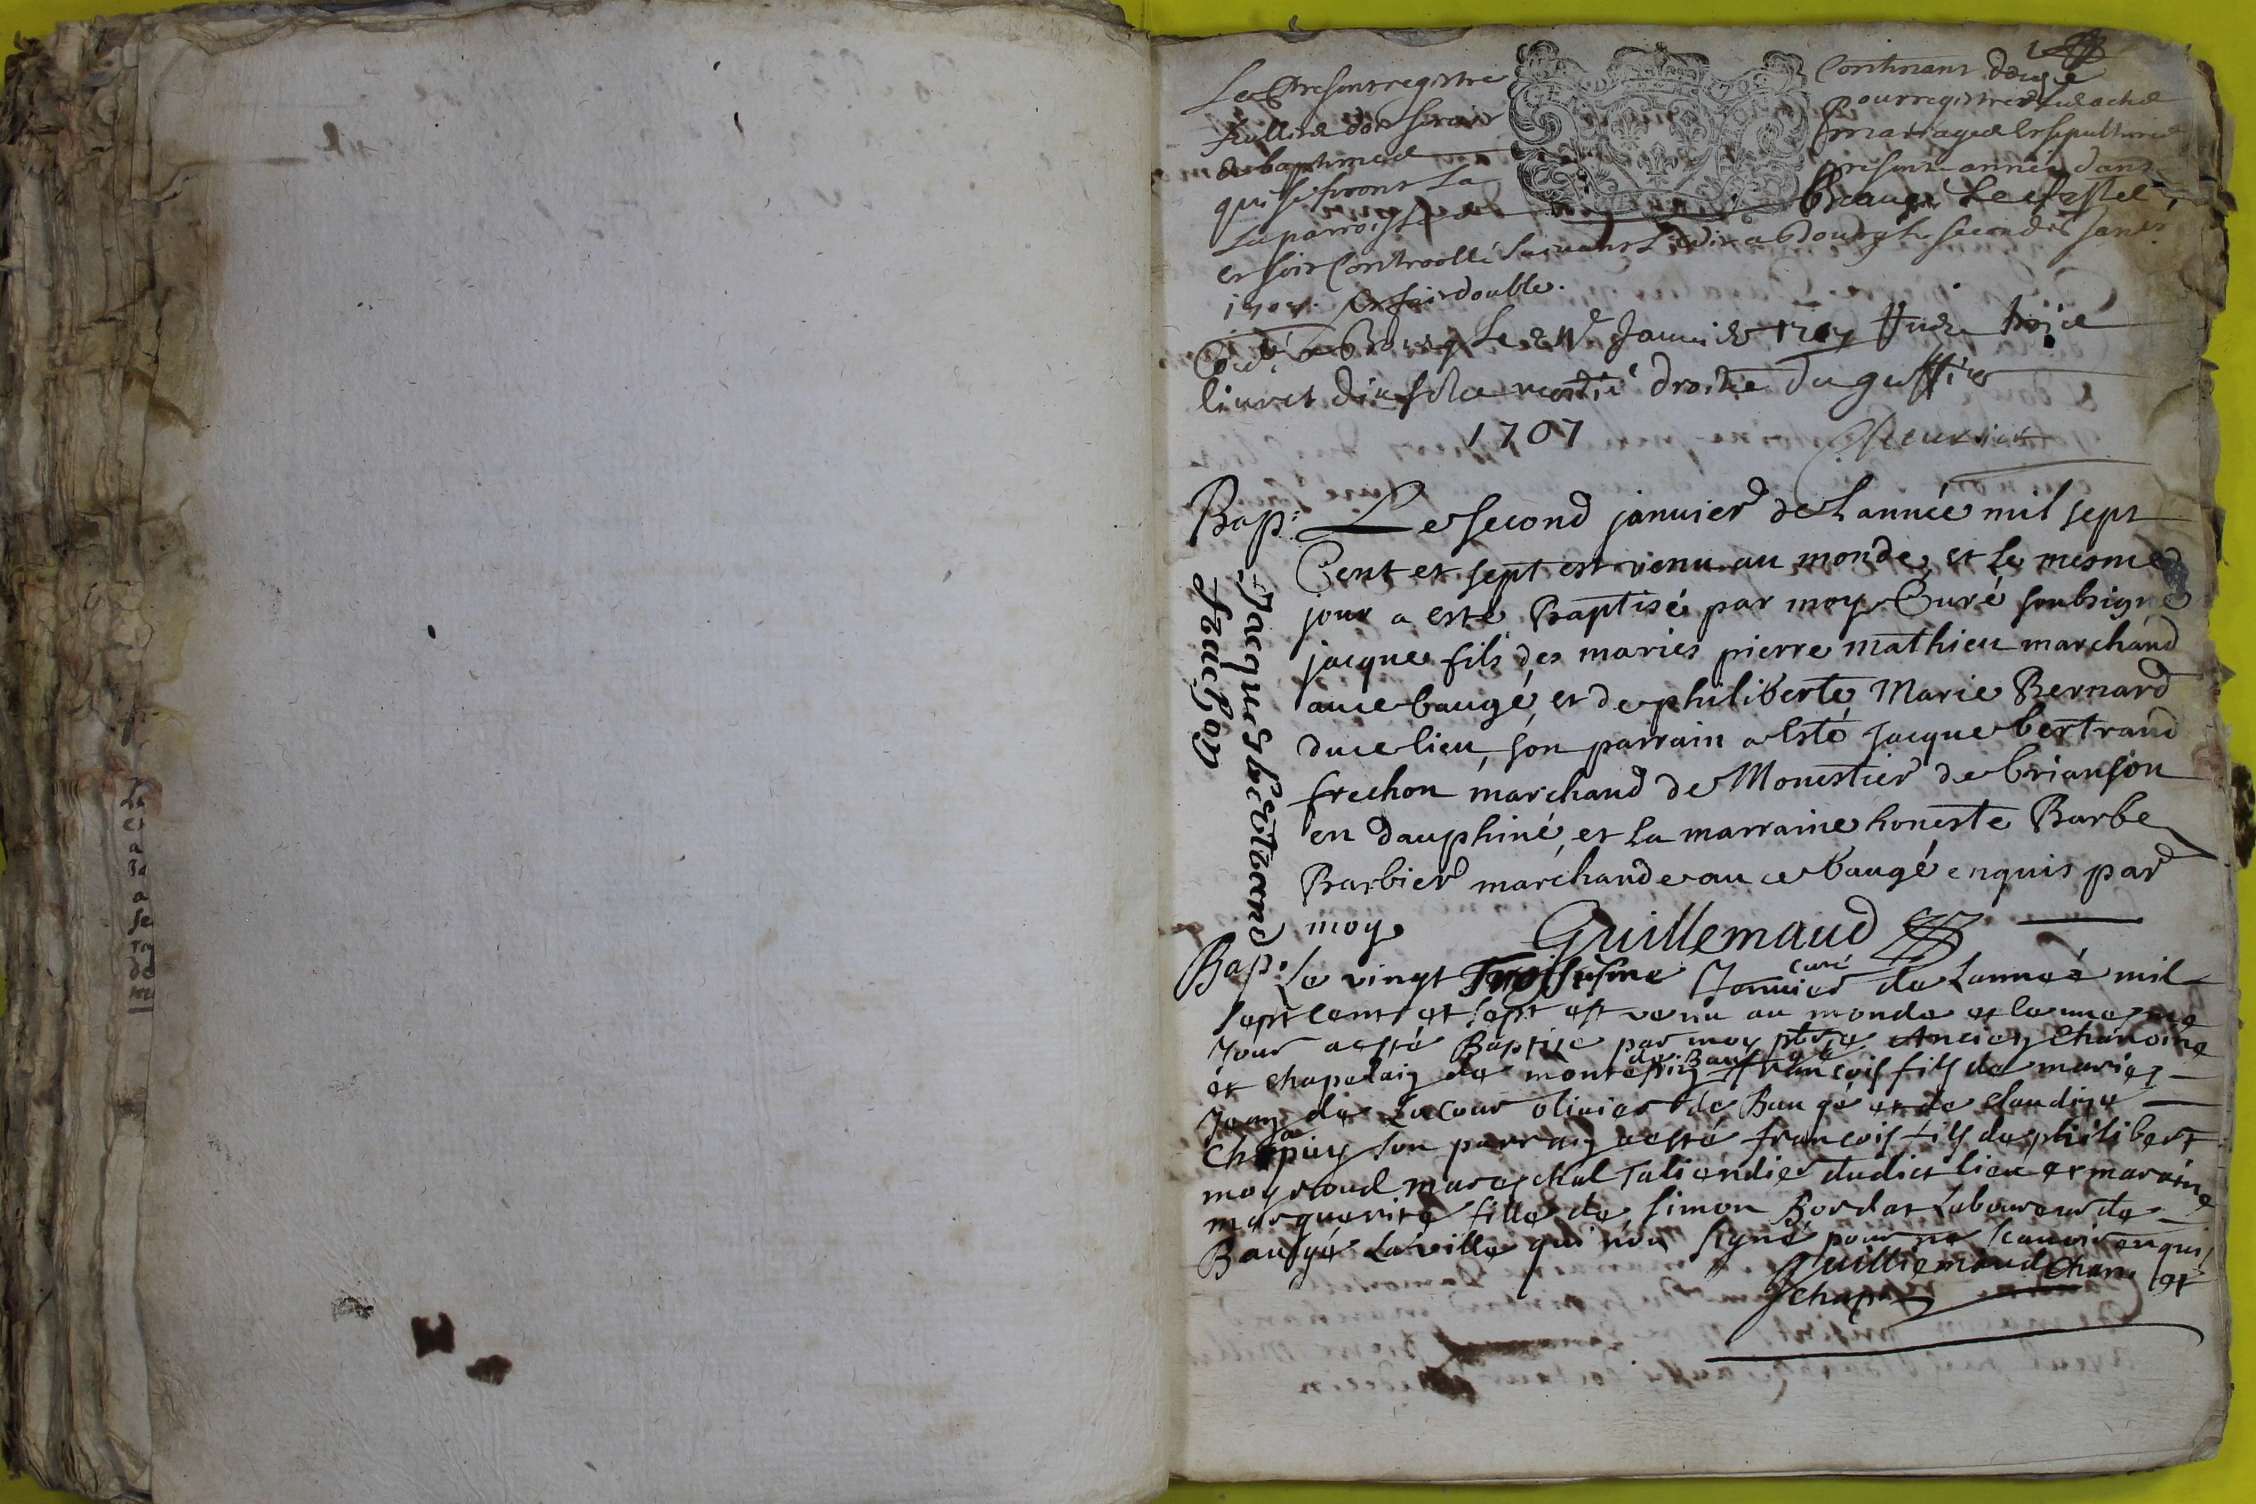 Le present registre Contenant douze
feullies doit servir Pour registrer les actes
de baptemes mariages et sepultures
qui se feront La presente année dans
La parroisse de Baugé Le Chastel
et soit Controollé suivant L'edit a Bourg le second janv.
1707. Et fait double.
a Bourg Le Janvier 1707
livres dix sols moitié droits du greffier
1707
Bap: Le second janvier de Lannée mil sept
Cent et sept est venu au monde et le mesme
jour a esté Baptisé par moy Curé soubsigné
jacque fils des mariés pierre mathieu marchand
au ce baugé, et de philiberte Marie Bernard
du ce lieu, son parrain a Esté Jacque bertrand
frechon marchand de Monestier de briansón
en dauphiné, et La marraine honeste Barbe
Barbier marchande au ce baugé enquis par
moy Guillemaud
curé
Jacques bertrand
frachon
Bap: Le vingt Troisiesme Janvier de Lannee mil
sept cent et sept est venu au monde et le mesme
Jour a esté Baptise par moy pbre Ancien Chanoine
de Baugé
et chapelain de montepin francois fils de mariez
Jean de Lacour olivier de Baugé et de claudine
Chapuy son parrain a esté francois fils de philibert
moyroud mareschal Taliendier dudict lieu et maraine
marguerite fille de simon Bordat Laboureur de
Baugé La ville qui non signé pour ne scavoir enquis
Guilliemaud chan. et
chap.